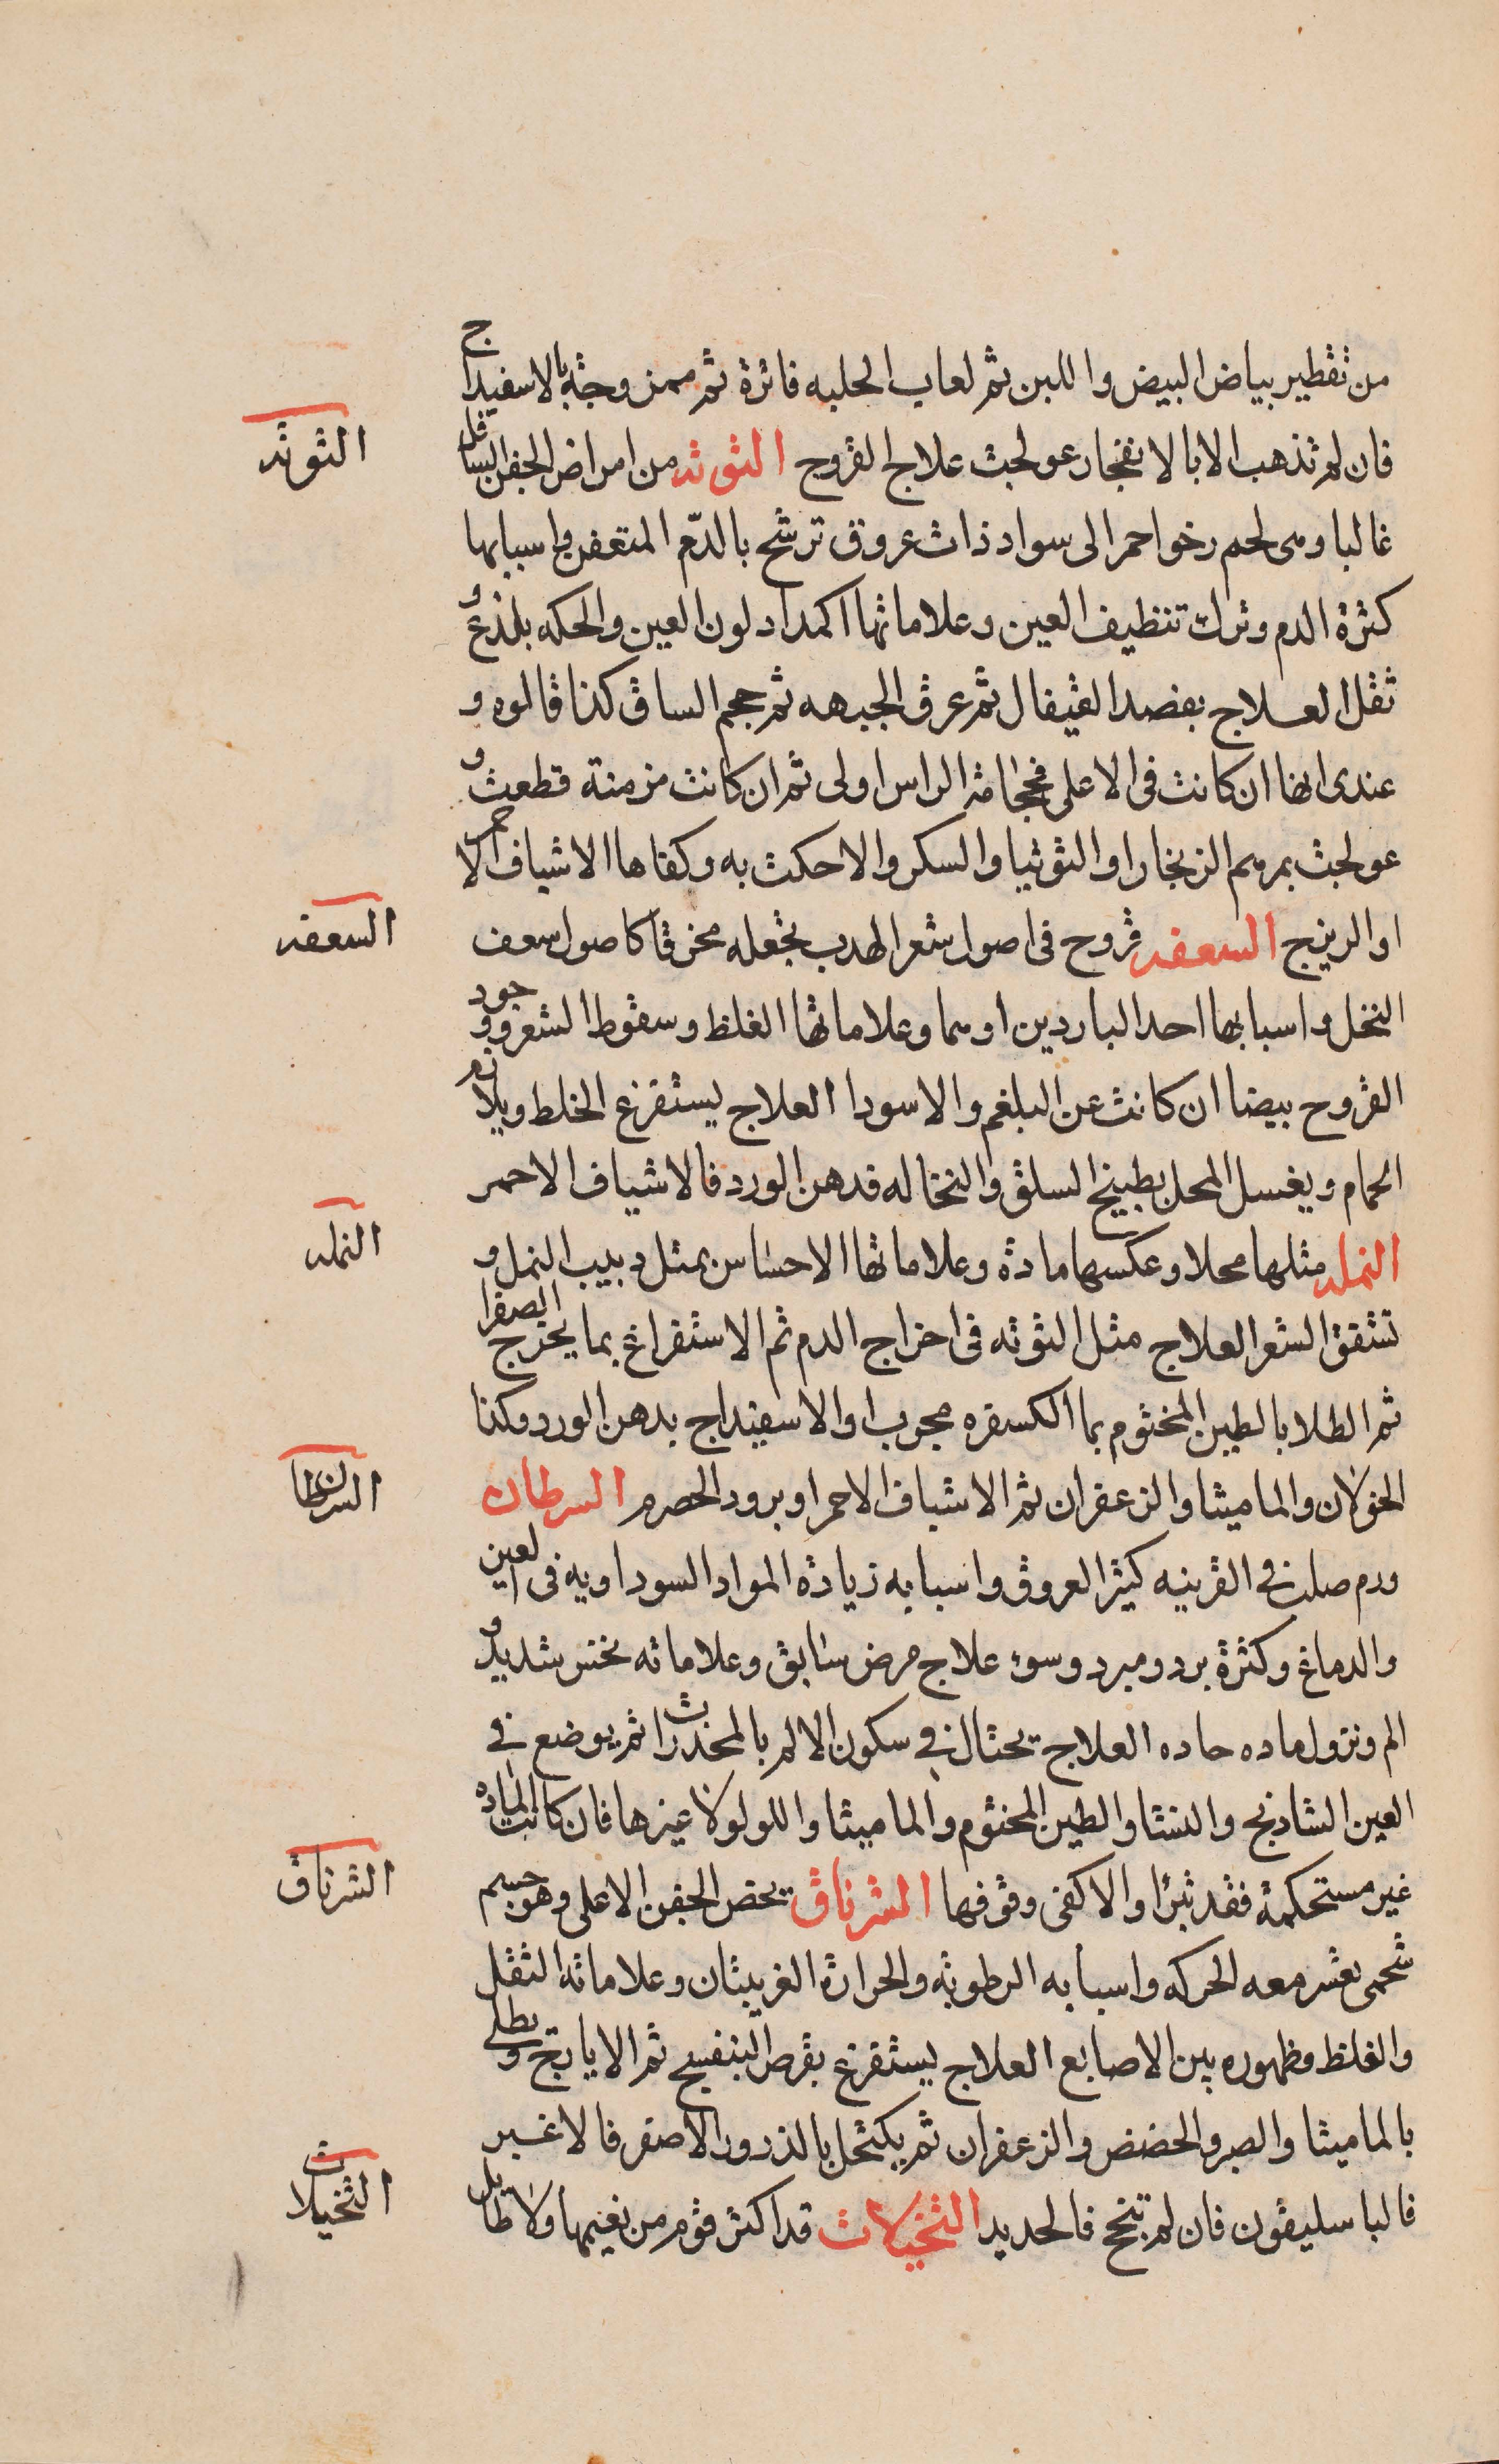 من تقطير بياض البيض واللبن ثم لعاب الحلبه فاترة ثم ممزوجة بالاسفيداج
فان لم تذهب الا بالانفجار عولجت علاج القروح التوته من امراض الجفن السافل
التوته
غالبا وهى لحم رخو احمر الى سواد ذات عروق ترشح بالدّم المتعفن واسبابها
كثرة الدم وترك تنظيف العين وعلاماتها اكمداد لون العين والحكه بلذع و
ثقل العلاج بفصد القيفال ثم عرق الجبهه ثم حجم الساق كذا قالوه و
عندى انها ان كانت فى الاعلى فحجامة الراس اولى ثم ان كانت مزمنة قطعت و
عولجت بمرهم الزنجار او التوتيا والسكر والا حكت به وكفاها الاشياف الاحمر
او الرينج السعفه قروح فى اصول شعر الهدب تجعله مخرقا كاصول سعف
السعفه
النخل واسبابها احد الباردين او هما وعلاماتها الغلظ وسقوط الشعر ووجود
القروح بيضا ان كانت عن البلغم والا سودا العلاج يستفرغ الخلط ويلازم
الحمام ويغسل المحل بطبيخ السلق والنخاله فدهن الورد فالاشياف الاحمر
النمله مثلها محلا وعكسها مادة وعلاماتها الاحساس بمثل دبيب النمل و
النمله
تشقق الشعر العلاج مثل التوته فى اخراج الدم ثم الاستفراغ بما يخرج الصفرا
ثم الطلا بالطين المختوم بما الكسفره مجرب او الاسفيداج بدهن الورد وكذا
الخولان والماميثا والزعفران ثم الاشياف الاحمر او برود الحصرم السرطان
السرطان
ورم صلب فى القرنيه كثير العروق واسبابه زيادة المواد السوداويه فى العين
والدماغ وكثرة برد ومبرد وسوء علاج مرض سابق وعلاماته نخس شديد و
الم ونزول ماده حاده العلاج يحتال فى سكون الالم بالمخدرات ثم يوضع فى
العين الشاذنج والنشا والطين المختوم والماميثا واللولو لا غيرها فان كانت الماده
غير مستحكمة فقد تبرا والا كفى وقوفها الشرناق يخص الجفن الاعلى وهو جسم
الشرناق
شحمى تعسر معه الحركه واسبابه الرطوبة والحرارة الغريبتان وعلاماته الثقل
والغلظ وظهوره بين الاصابع العلاج يستفرغ بقرص البنفسج ثم الايارج ويطلى
بالماميثا والصبر والحضض والزعفران ثم يكتحل بالذرور الاصفر فالاغبر
فالباسليقون فان لم تنجح فالحديد التخيلات قد اكثر قوم من تغيمها ولا طايل
التخيلات